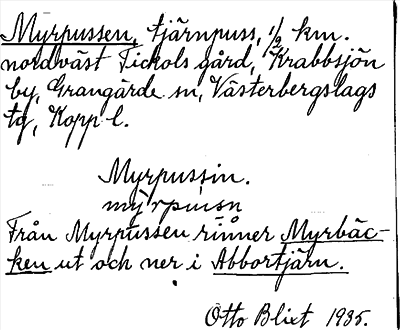 Myrpussen, tjärnpuss, 1/2 km.
nordväst Fickols gård, Krabbsjön
by, Grangärde sn, Västerbergslags
tg, Kopp l.
Myrpussin.
Från Myrpussen rinner Myrbäc-
ken ut och ner i Abbortjärn.
Otto Blixt 1935.